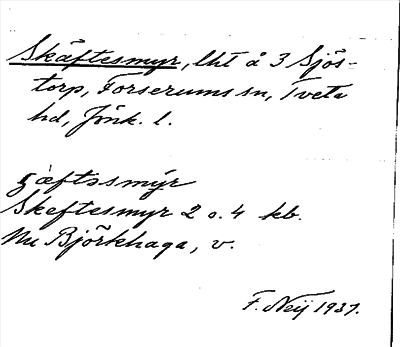 Skäftesmyr, lht å 3 Sjös-
torp, Forserums sn, Tveta
hd, Jönk. l.
ʒæftəsmýr
Skeftesmyr 2 o. 4 kb.
Nu Björkhaga, v.
F. Neij 1937.